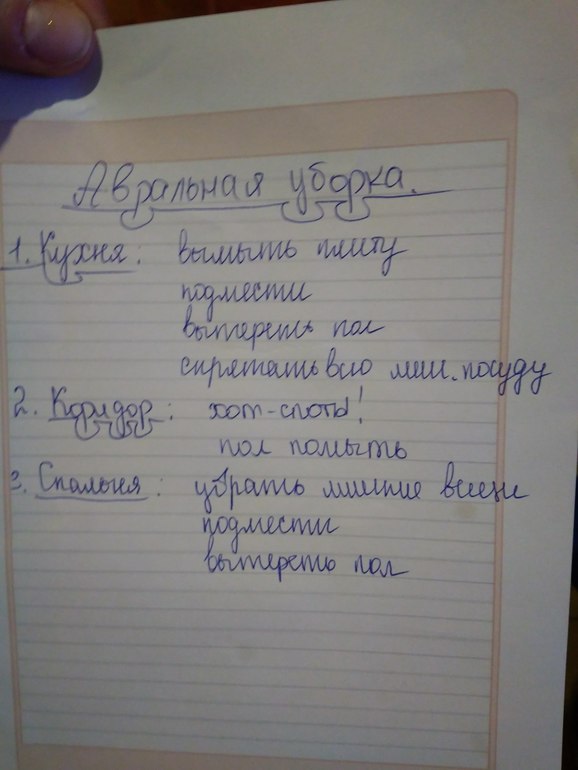 Авральная уборка.
1. Кухня: вымыть плиту
подмести
вытереть пол
спрятать всю лиш. посуду
2. Коридор: хот-споты!
пол помыть
3. Спальня: убрать лишние вещи
подмести
вытереть пол